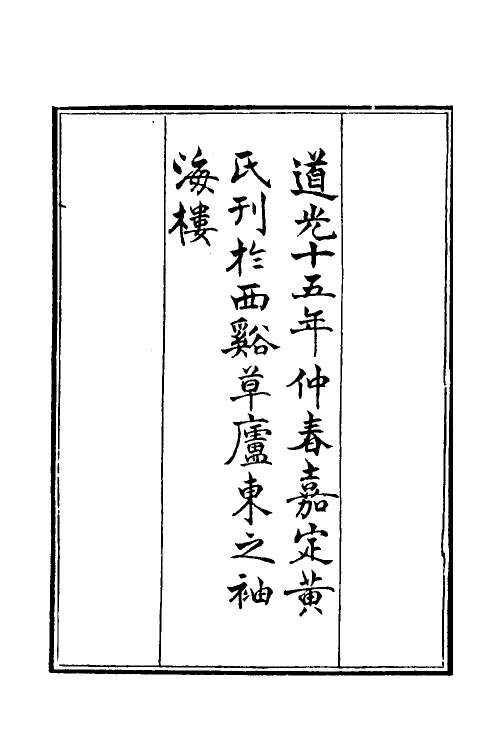 道光十五年仲春嘉定黃
氏刊於西谿草廬東之袖
海樓